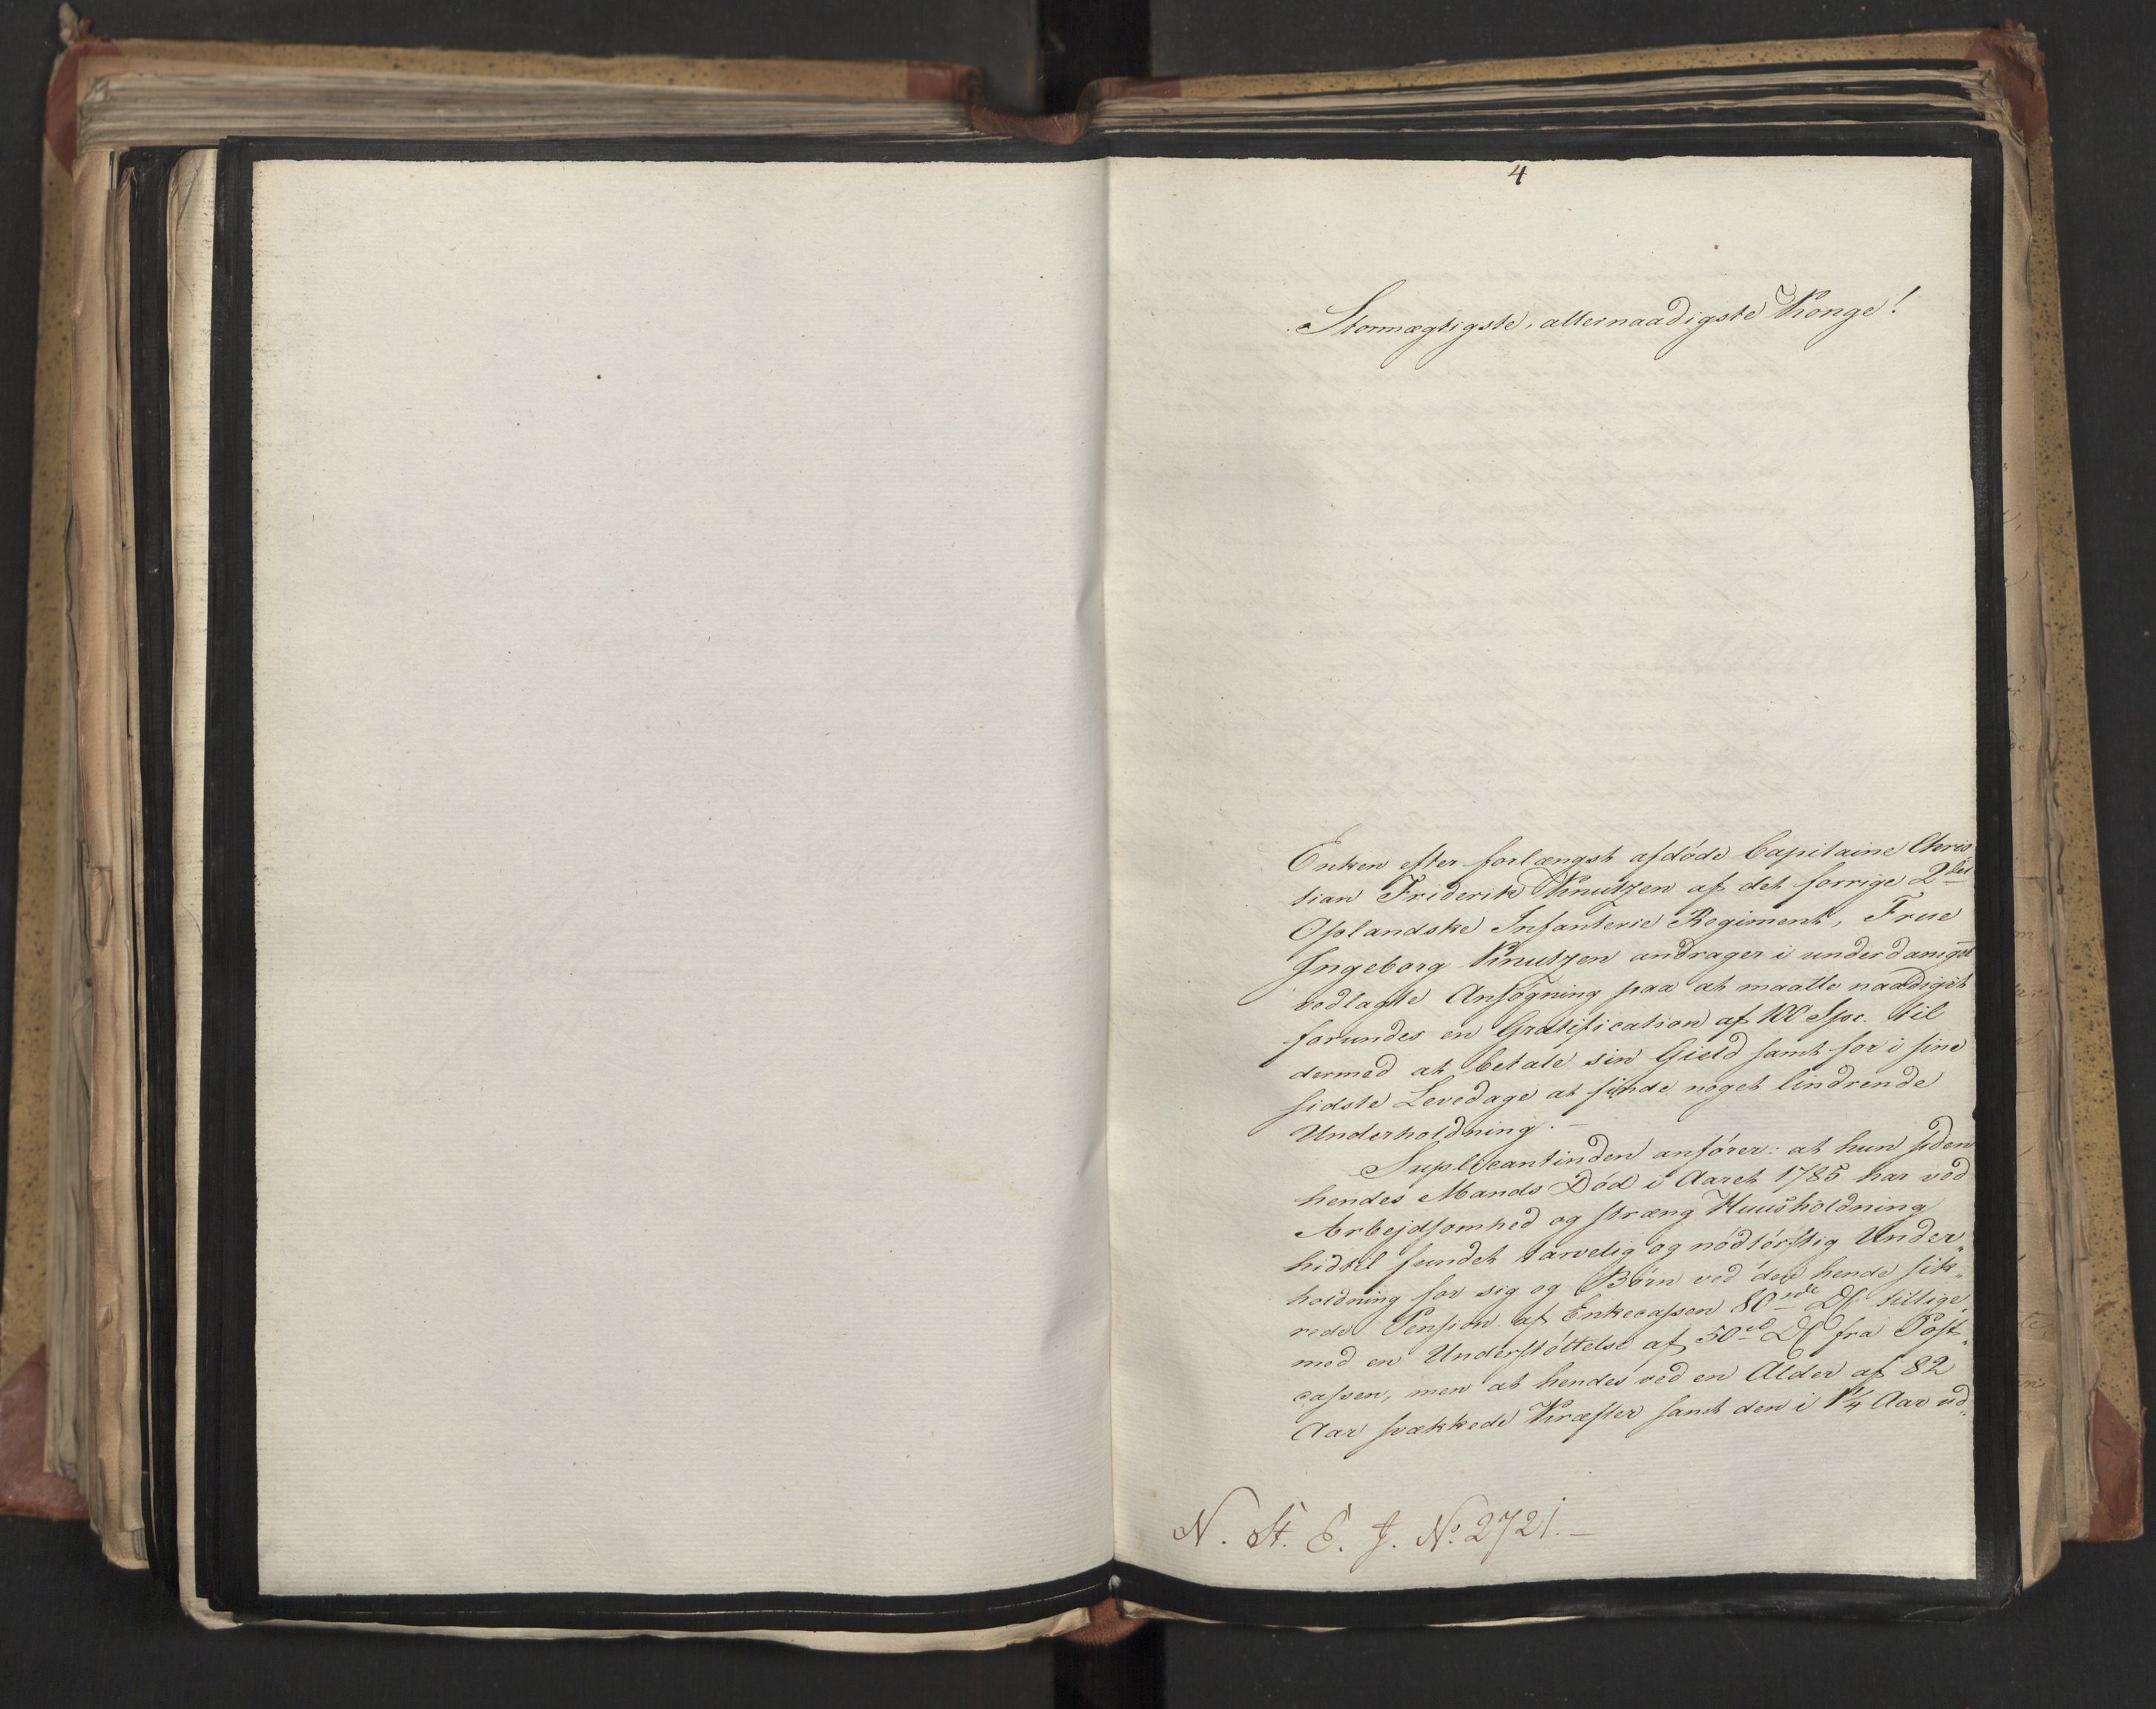 4
Stormægtigste, allernaadigste Konge!
Enken efter forlængst afdøde Capitaine Chris
tian Friderik Knutzen af det forrige 2det
Oplandske Infanterie Regiment, Frue
Ingeborg Knutzen andrager i underdanigst
vedlagte Ansøgning paa at maatte naadigst
forundes en Gratification af 100 Spc. til
dermed at betale sin Gield samt for i sine
sidste Levedage at finde noget lindrende
Underholdning. –
Suplicantinden anfører: at hun siden
hendes Mands Død i Aaret 1785 har ved
Arbejdsomhed og stræng Huusholdning
hidtil fundet tarvelig og nødtørftig Under„
holdning for sig og Børn ved den hende sik„
rede Pension af Enkecassen 80 Rd tillige„
med en Understøttelse af 50 Rd fra Post„
cassen, men at hendes ved en Alder af 82
Aar svækkede Kræfter samt den i 1¼ Aar ud„
N. St. E. J. No. 2721. –